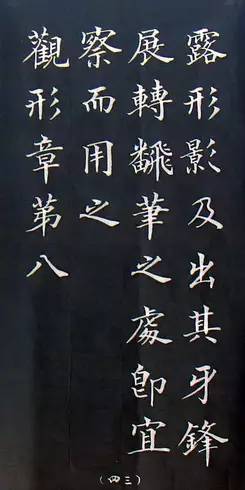 露形影及出其牙鋒
展轉飜筆之處即宜
察而用之
觀形章第八
（四三）